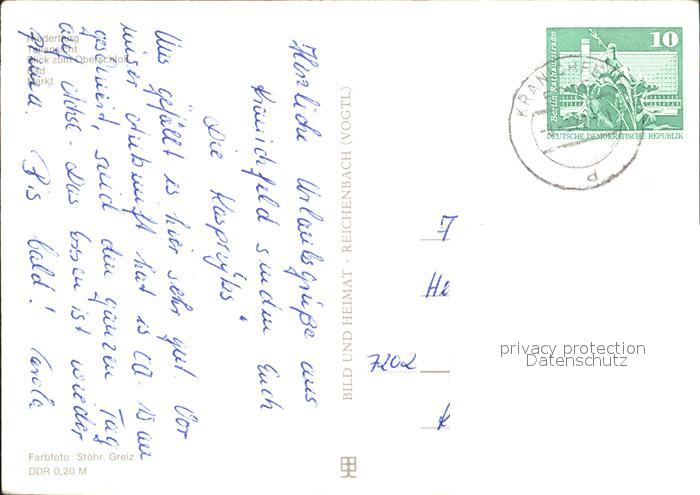 Niederburg
Teilansicht
Blick zum Oberschloß
Bad
Markt
Herzliche Urlaubsgrüße aus
Kranichfeld senden Euch
Die Kaspreyks'
Uns gefällt es hier sehr gut. Vor
unser Ankunft hat es ca. 15 cm
geschneit, sind den ganzen Tag
auf Achse. Das Essen ist wieder
prima. Bis bald! Carola
Farbfoto: Stöhr, Greiz
DDR 0,20 M
BILD UND HEIMAT · REICHENBACH (VOGTL)
Berlin, Rathausstraße
10
DEUTSCHE DEMOKRATISCHE REPUBLIK
KRANICHFE
d
He
7202
privacy protection
Datenschutz